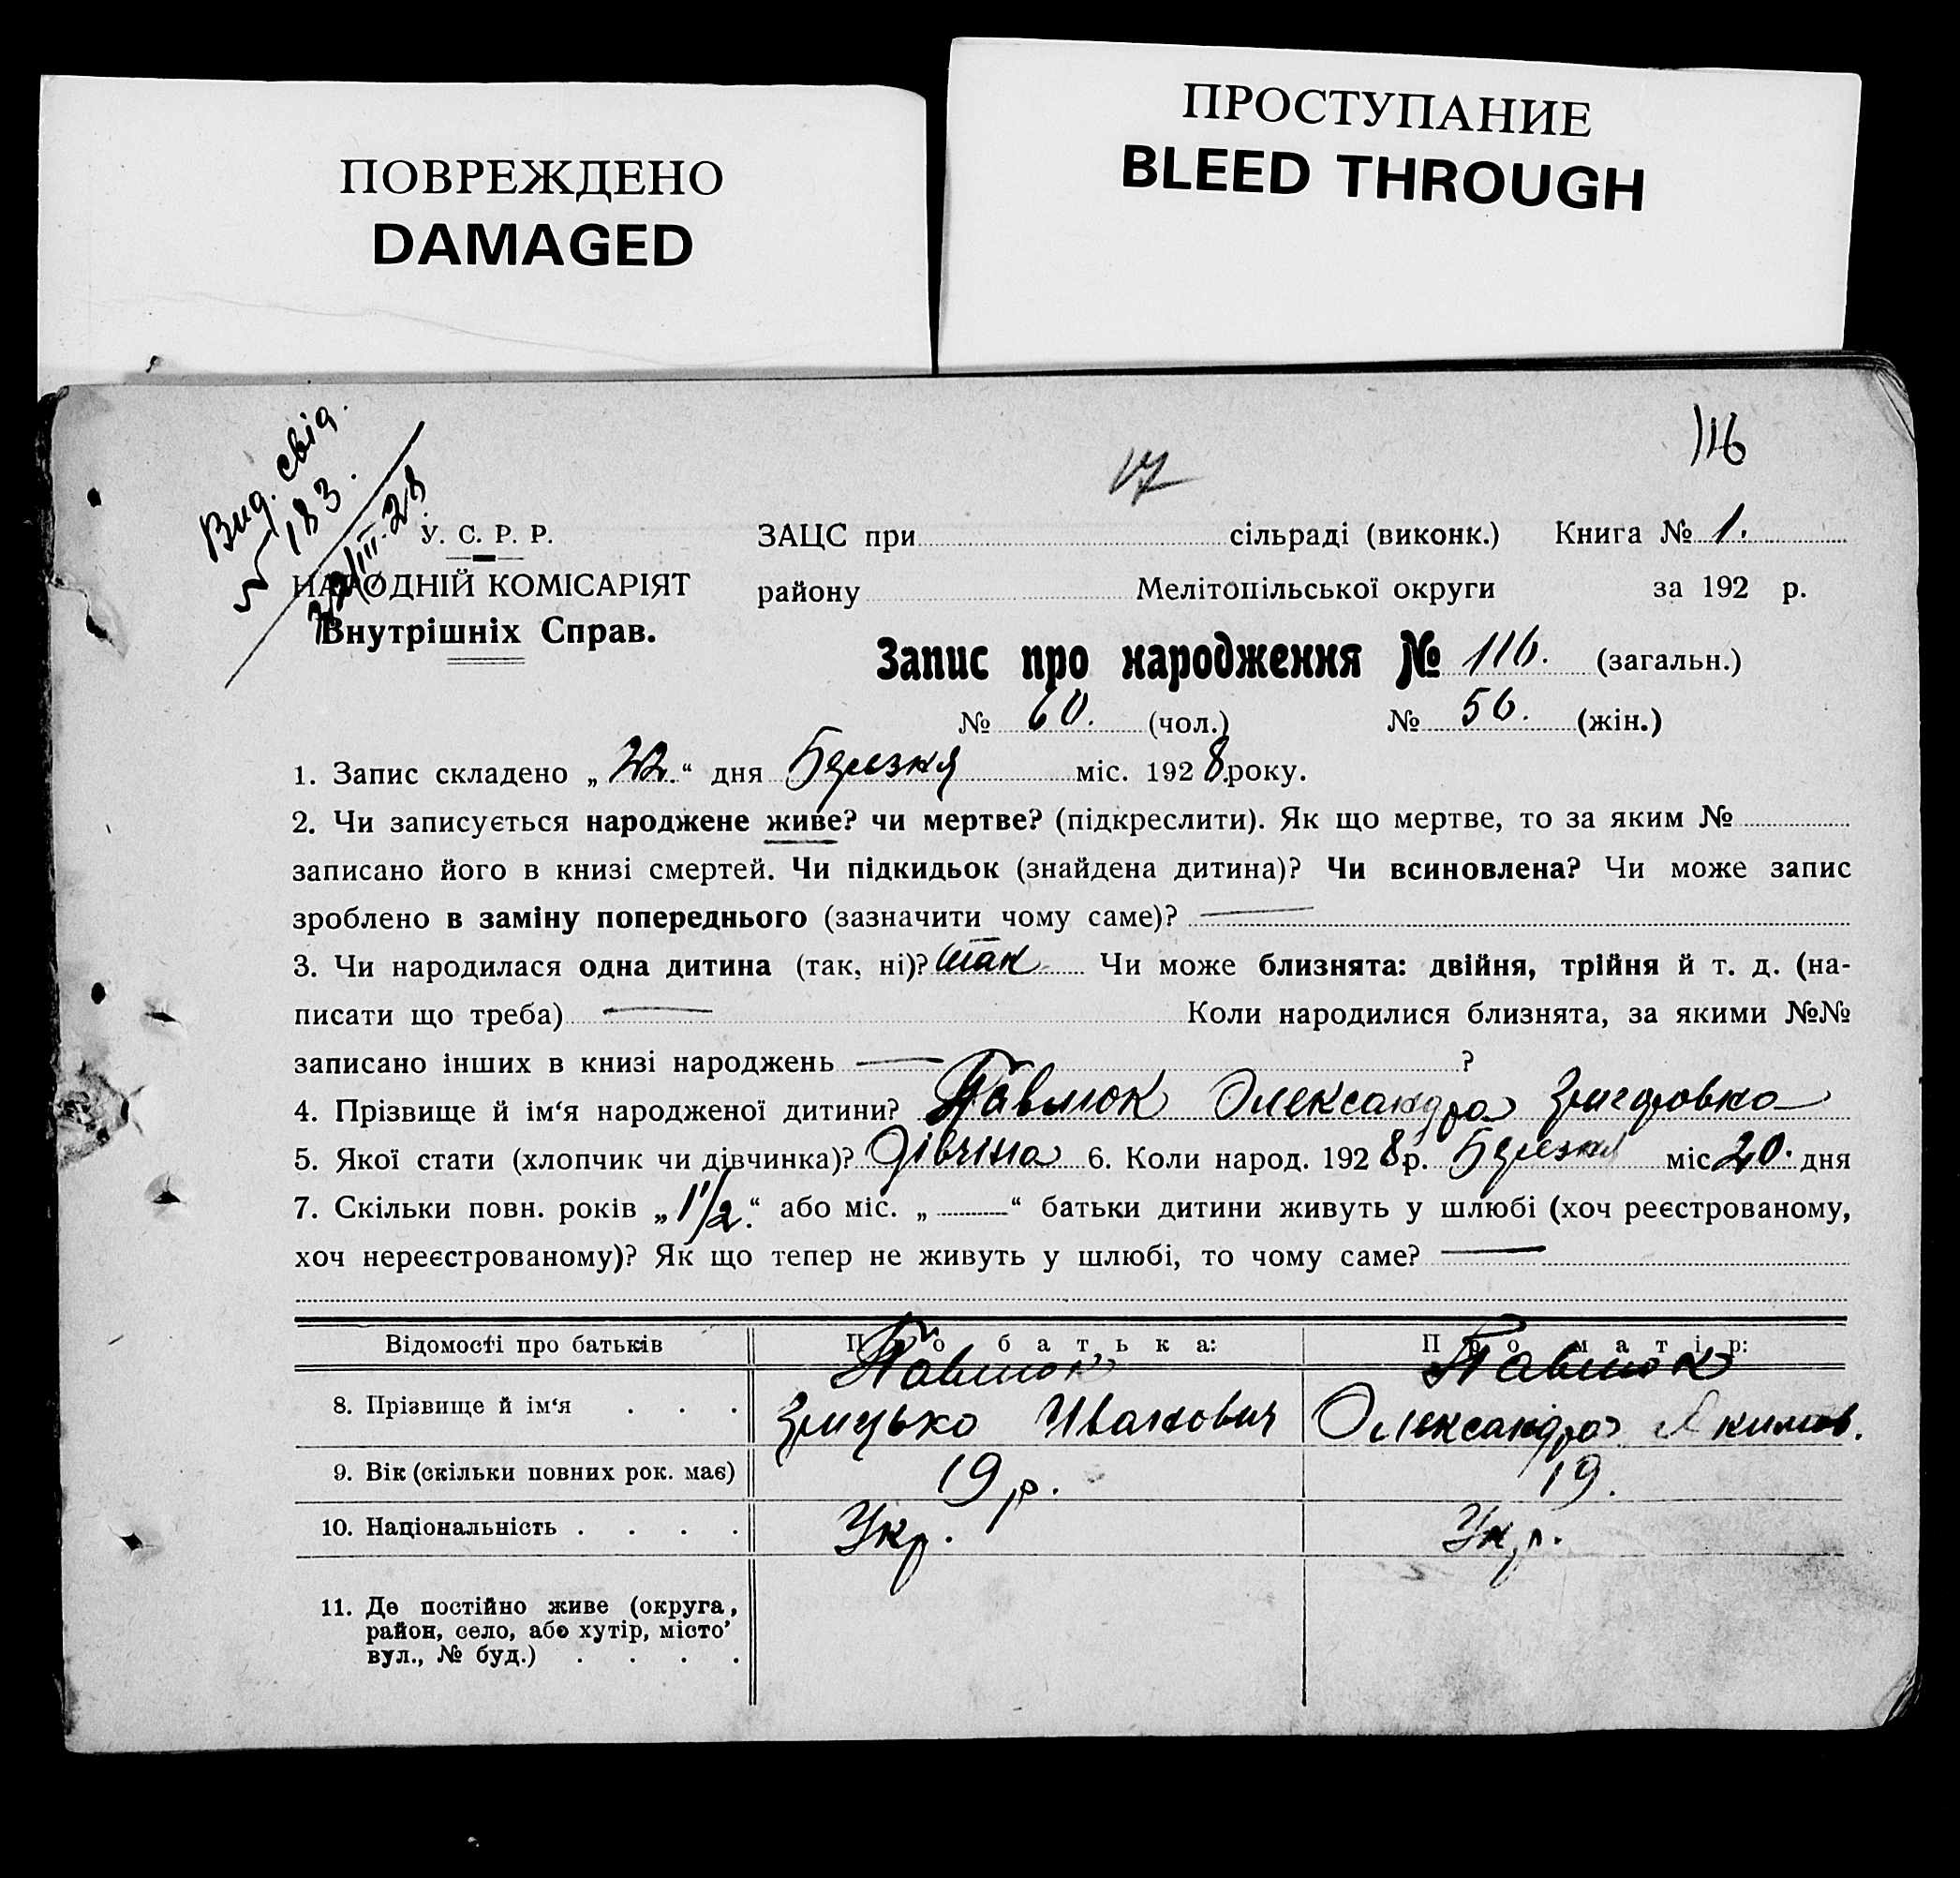 ПОВРЕЖДЕНО
DAMAGED
ПРОСТУПАНИЕ
BLEED THROUGH
116
17
Вид. свід.
183.
22/III-28
У. С. Р. Р.
НАРОДНІЙ КОМІСАРІЯТ
Внутрішніх Справ.
ЗАЦС при сільраді (виконк.) Книга № 1.
району Мелітопільської округи за 192 р.
Запис про народження № 116. (загальн.)
№ 60. (чол.) № 56. (жін.)
1. Запис складено „22.“ дня Березня міс. 1928 року.
2. Чи записується народжене живе? чи мертве? (підкреслити). Як що мертве, то за яким №
записано його в книзі смертей. Чи підкидьок (знайдена дитина)? Чи всиновлена? Чи може запис
зроблено в заміну попереднього (зазначити чому саме)? —
3. Чи народилася одна дитина (так, ні)? так Чи може близнята: двійня, трійня й т. д. (на-
писати що треба) — Коли народилися близнята, за якими №№
записано інших в книзі народжень — ?
4. Прізвище й ім‘я народженої дитини? Павлюк Олександра
5. Якої стати (хлопчик чи дівчинка)? Дівчіна 6. Коли народ. 1928 р. Березня міс 20. дня
7. Скільки повн. років „1 1/2.“ або міс. „—“ батьки дитини живуть у шлюбі (хоч реєстрованому,
хоч нереєстрованому)? Як що тепер не живуть у шлюбі, то чому саме? —
Відомості про батьків Про батька: Про матір:
Павлюк Павлюк
8. Прізвище й ім‘я . . . Грицько Иванович Олександра Якимов.
9. Вік (скільки повних рок. має) 19 р. 19.
10. Національність . . . . Укр. Укр.
11. Де постійно живе (округа,
район, село, або хутір, місто’
вул., № буд.) . . . .